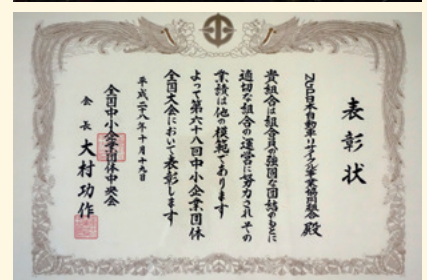 表彰状
NGP日本自動車リサイクル事業協同組合 殿
貴組合は組合員の強固な団結のもとに
適切な組合の運営に努力されその
業績は他の模範であります
よって第六十八回中小企業団体
全国大会において表彰します
平成二十八年十月十九日
全国中小企業団体中央会
会長 大村功作